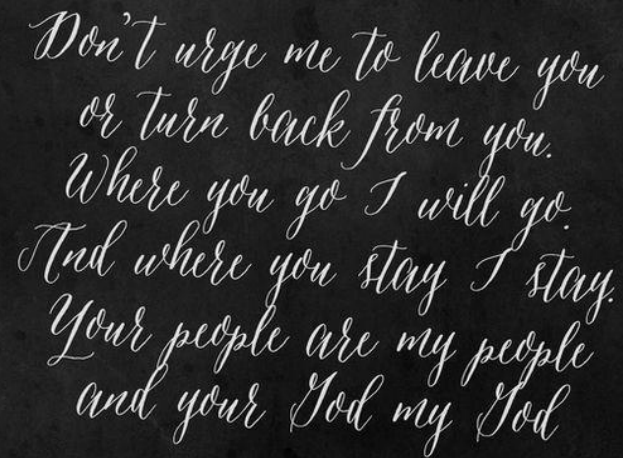 Don't urge me to leave you
or turn back from you.
Where you go I will go.
And where you stay I stay.
Your people are my people
and your God my God